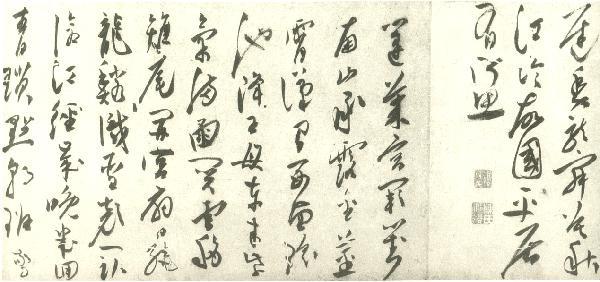 遲魚龍寂寞秋
江冷故國平居
有所思
蓬萊宮闕對
南山承露金莖
霄漢間西望瑤
池降王母東來紫
氣滿函關雲移
雉尾開宮扇日繞
龍鱗識聖顏一臥
滄江經歲晚幾回
青瑣點朝班驚